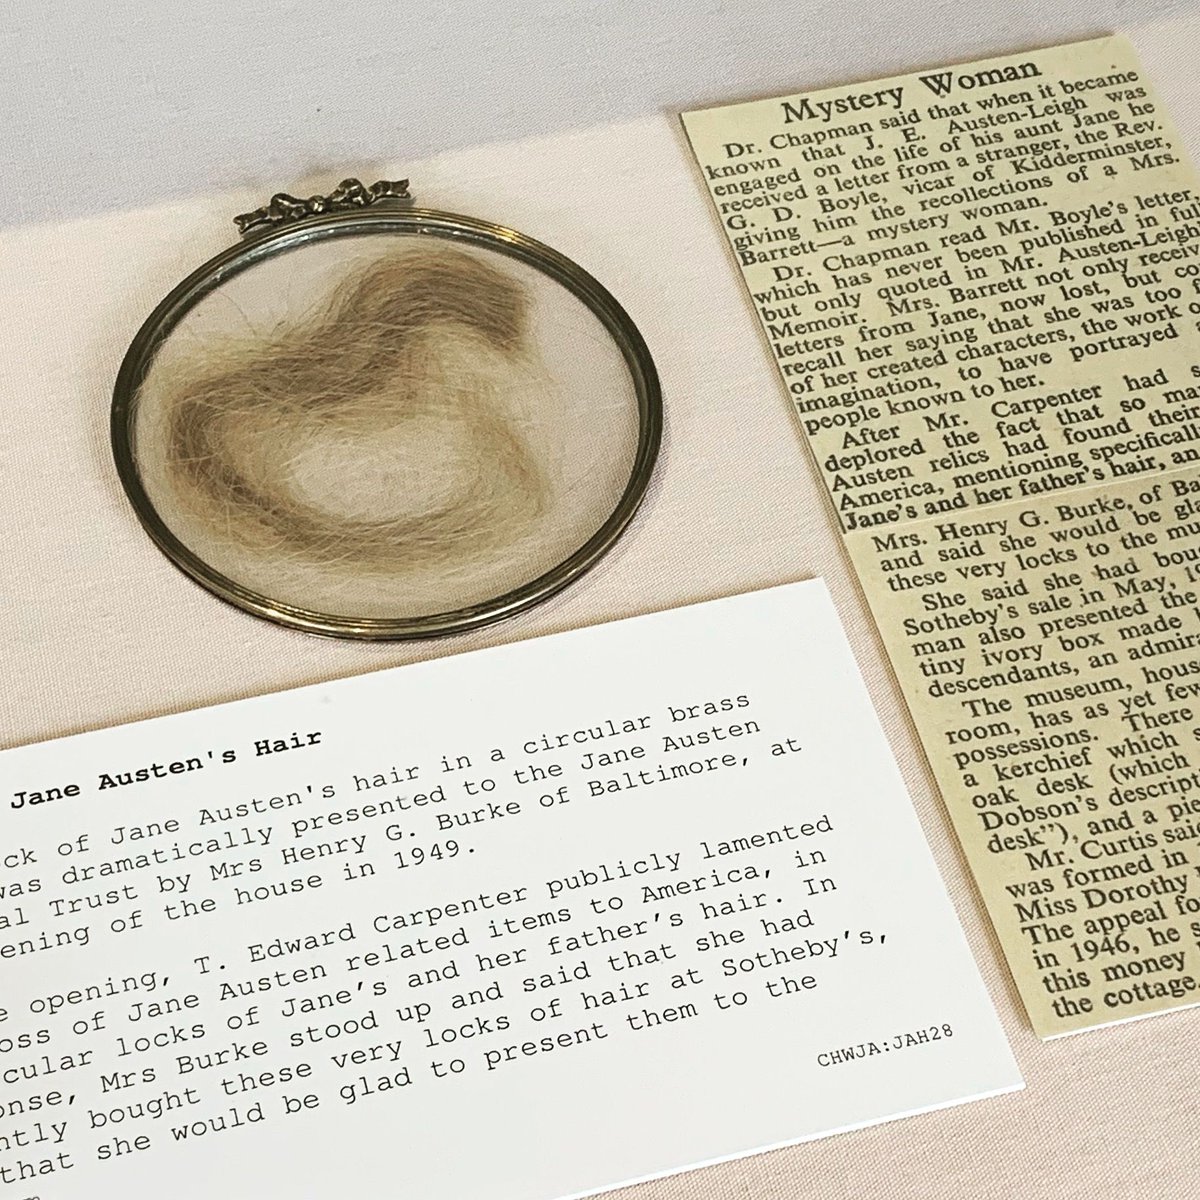 Mystery Woman
Dr. Chapman said that when it became
known that J. E. Austen-Leigh was
engaged on the life of his aunt Jane he
received a letter from a stranger, the Rev.
G. D. Boyle, vicar of Kidderminster,
giving him the recollections of a Mrs.
Barrett—a mystery woman.
Dr. Chapman read Mr. Boyle's letter,
which has never been published in full
but only quoted in Mr. Austen-Leigh'
Memoir. Mrs. Barrett not only receiv
letters from Jane, now lost, but co
recall her saying that she was too f
of her created characters, the work o
imagination, to have portrayed
people known to her.
After Mr. Carpenter had s
deplored the fact that so ma
Austen relics had found their
America, mentioning specificall
Jane's and her father's hair, an
Mrs. Henry G. Burke, of Ba
and said she would be gla
these very locks to the mu
She said she had bou
Sotheby's sale in May, 19
man also presented the
tiny ivory box made
descendants, an admira
The museum, hous
room, has as yet few
possessions. There
a kerchief which s
oak desk (which
Dobson's descript
desk"), and a pie
Mr. Curtis sai
was formed in
Miss Dorothy
The appeal fo
in 1946, he s
this money
the cottage.
Jane Austen's Hair
ck of Jane Austen's hair in a circular brass
was dramatically presented to the Jane Austen
al Trust by Mrs Henry G. Burke of Baltimore, at
ening of the house in 1949.
e opening, T. Edward Carpenter publicly lamented
oss of Jane Austen related items to America, in
cular locks of Jane's and her father's hair. In
onse, Mrs Burke stood up and said that she had
ntly bought these very locks of hair at Sotheby's,
that she would be glad to present them to the
CHWJA:JAH28